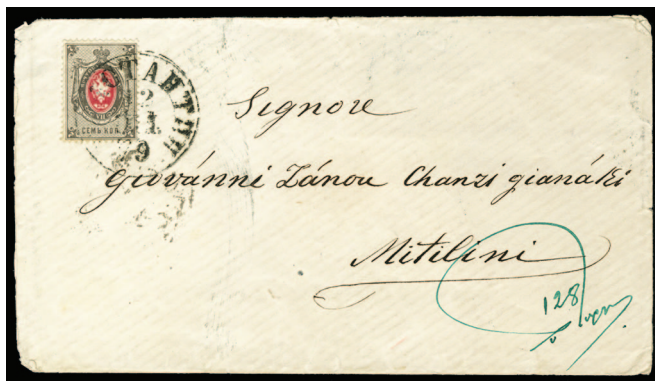 СЕМЬ КОП.
Signore
Giovánni Zánou Chanzi gianáki
Mitilini
128